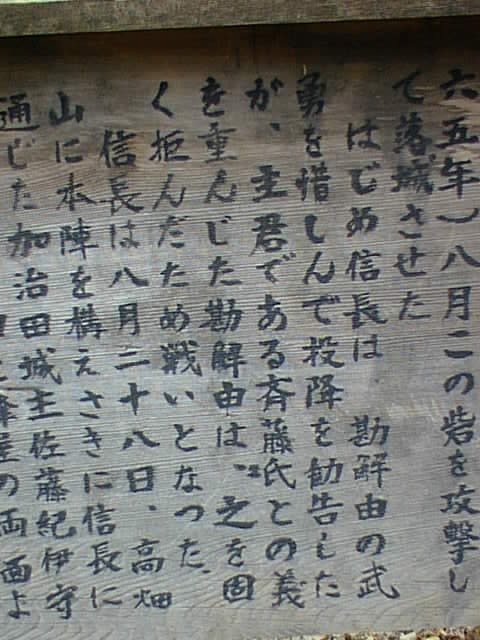 六五年)八月この砦を攻撃し
て落城させた
はじめ信長は 勘解由の武
勇を惜しんで投降を勧告した
が、主君である斉藤氏との義
を重んじた勘解由は、之を固
く拒んだため戦いとなった、
信長は八月二十八日、高畑
山に本陣を構えさきに信長に
通じた加治田城主佐藤紀伊守
の両面よ